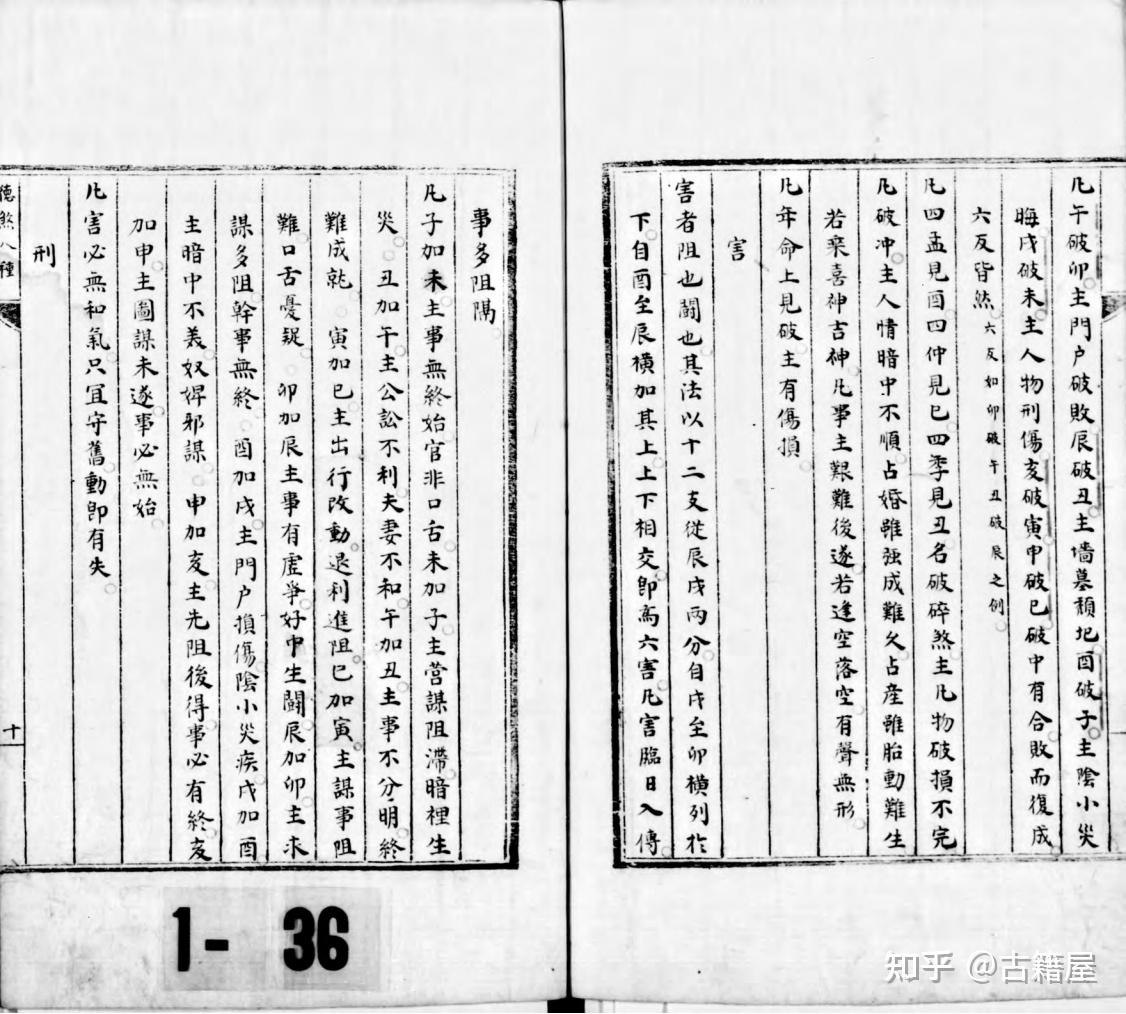 凡午破卯主門户破敗辰破丑主墻墓頽圮酉破子主陰小災
晦戌破未主人物刑傷亥破寅申破巳破中有合敗而復成
六反皆然六反如卯破午丑破辰之例
凡四孟見酉四仲見巳四季見丑名破碎煞主凡物破損不完
凡破冲主人情暗中不順占婚雖强成難久占産雖胎動難生
若乘喜神吉神凡事主艱難後遂若逢空落空有聲無形
凡年命上見破主有傷損
害
害者阻也闘也其法以十二支從辰戌兩分自戌至卯横列於
下自酉至辰横加其上上下相交即爲六害凡害臨日入傳
事多阻隔
凡子加未主事無終始官非口舌未加子主營謀阻滯暗裡生
災 丑加午主公訟不利夫妻不和午加丑主事不分明終
難成就 寅加巳主出行改動退利進阻巳加寅主謀事阻
難口舌憂疑 卯加辰主事有虚爭好中生闘辰加卯主求
謀多阻幹事無終 酉加戌主門户損傷陰小災疾戌加酉
主暗中不義奴婢邪謀 申加亥主先阻後得事必有終亥
加申主圖謀未遂事必無始
凡害必無和氣只宜守舊動即有失
刑
德煞八種
十
1- 36
知乎 @古籍屋